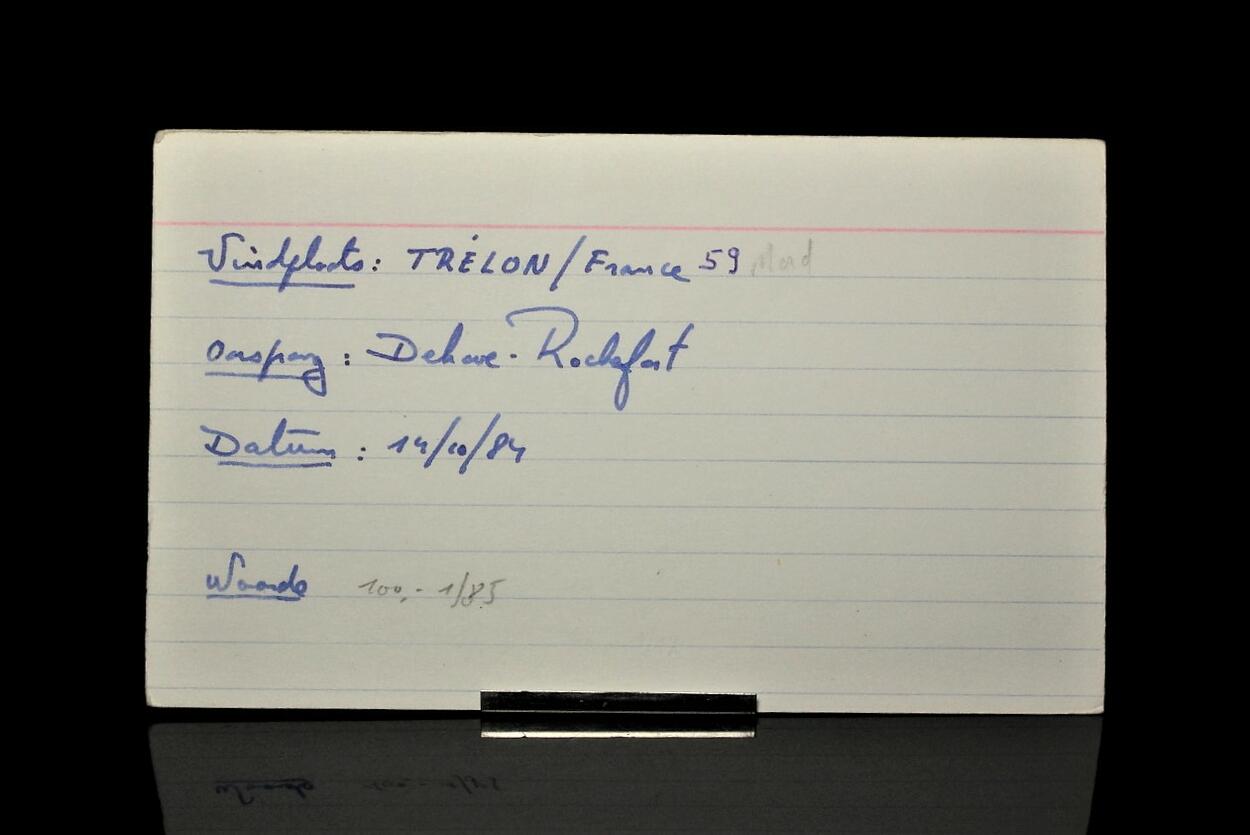 Vindplaats: TRÉLON/France 59 Nord
Oorsprong: Dehove-Rochefort
Datum: 14/10/84
Waarde 100,- 1/85